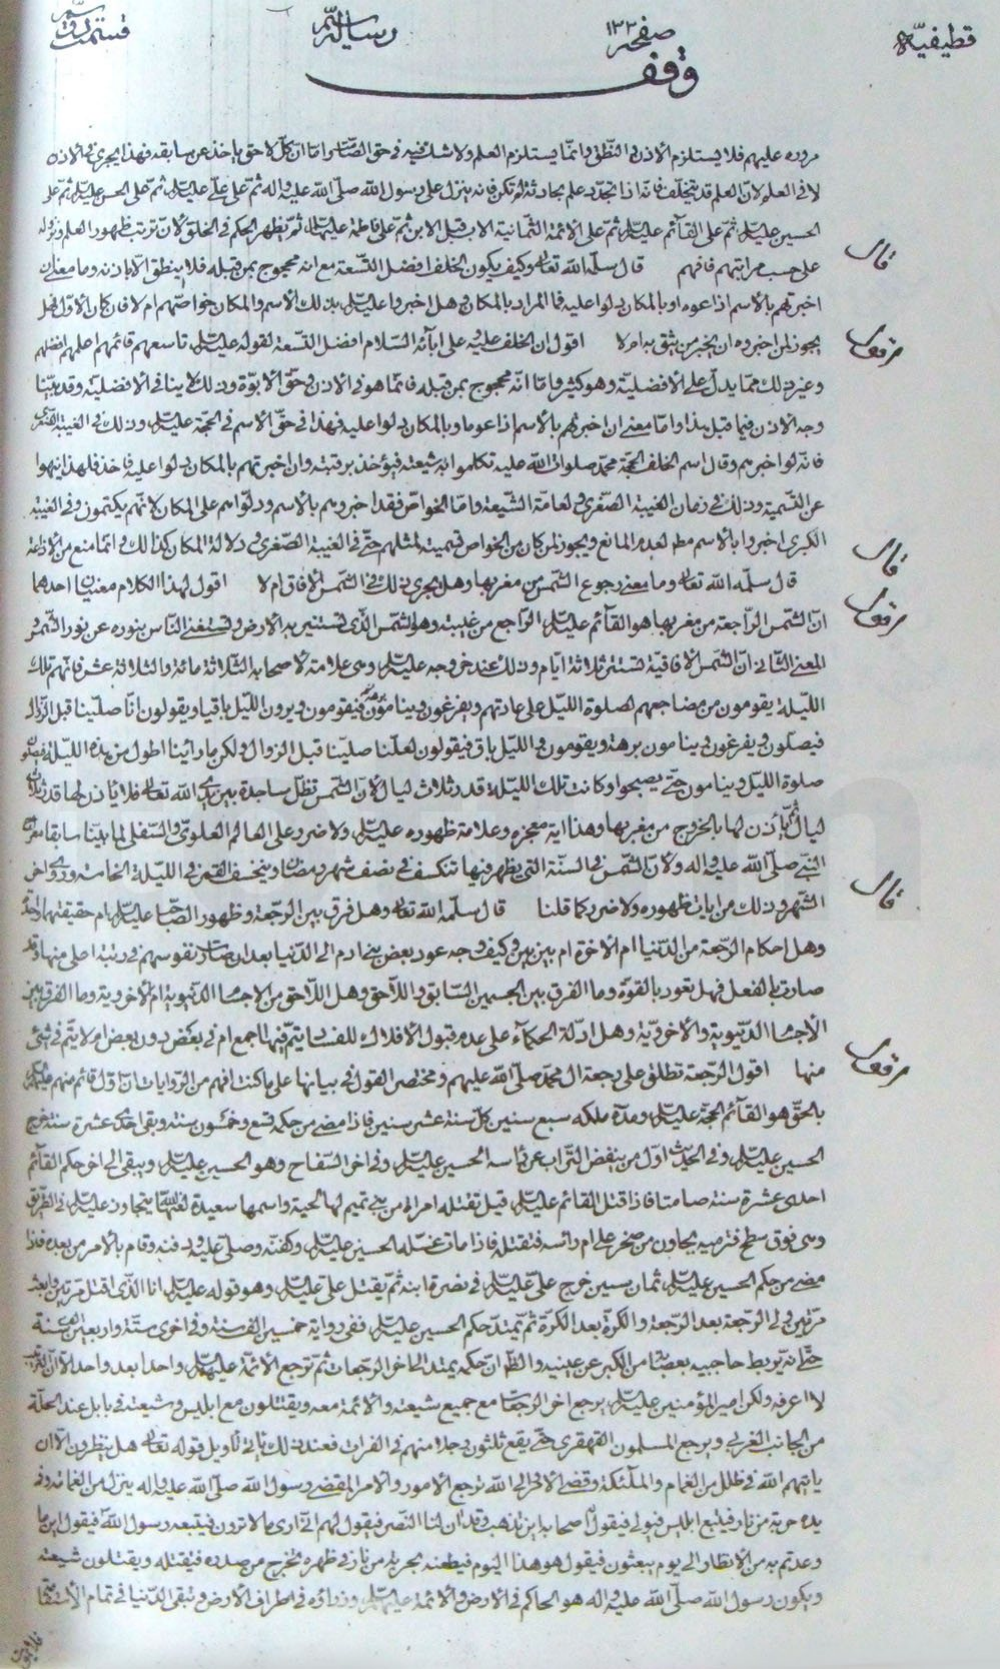 قطيفية صفحه ١٣٢ رسالة قسمت
وقف
مروره عليهم فلا يستلزم الاذن في النطق وانما يستلزم العلم ولا شك فيه في حق الصامت واما ان كل لاحق ياخذ عن سابقه فهذا يجري في الاذن
لا في العلم لان العلم قد يتخلف فانه اذا تجدد علم بحادثة لم تكن فانه ينزل على رسول الله صلى الله عليه واله ثم على علي عليه السلام ثم على الحسن عليه السلام ثم على
الحسين عليه السلام ثم على القائم عليه السلام ثم على الائمة الثمانية الاب قبل الابن ثم على فاطمة عليها السلام ثم يظهر الحكم في الخلق لان ترتب ظهور العلم ونزوله
على حسب مراتبهم فافهم قال سلمه الله تعالى وكيف يكون الخلف افضل التسعة مع انه محجوج بمن قبله فلا ينطق الا باذنه وما معنى ان
قال
اخبرتهم بالاسم اذاعوه او بالمكان دلوا عليه فما المراد بالمكان وهل اخبروا عليهم السلام بذلك الاسم والمكان خواصهم ام لا فان كان الاول فهل
يجوز لمن اخبروه ان يخبر من يثق به ام لا اقول ان الخلف عليه وعلى ابائه السلام افضل التسعة لقوله عليه السلام تاسعهم قائمهم اعلمهم افضلهم
وغير ذلك مما يدل على الافضلية وهو كثير واما انه محجوج بمن قبله فانما هو في الاذن وحق الابوة وذلك لا ينافي الافضلية وقد بينا
وجه الاذن فيما قبل هذا واما معنى ان اخبرتهم بالاسم اذاعوه او بالمكان دلوا عليه فهذا في حق الاسم في الحجة عليه السلام وذلك في الغيبة الصغرى
فانه لو اخبرهم وقال اسم الخلف الحجة محمد صلوات الله عليه تكلموا به شيعته فيؤخذ برقبته وان اخبرتهم بالمكان دلوا عليه فاخذ فلهذا نهوا
عن التسمية وذلك في زمان الغيبة الصغرى لعامة الشيعة واما الخواص فقد اخبروهم بالاسم ودلوهم على المكان لانهم يكتمون وفي الغيبة
الكبرى اخبروا بالاسم مطلقا لعدم المانع ويجوز لمن كان من الخواص تسميته لمثلهم حتى في الغيبة الصغرى ودلالة المكان كذلك وانما منع من الاذاعة
قال
قال سلمه الله تعالى وما معنى رجوع الشمس من مغربها وهل يجري ذلك في الشمس الافاق ام لا اقول لهذا الكلام معنيان احدهما
ان الشمس الراجعة من مغربها هو القائم عليه السلام الراجع من غيبته وهو الشمس الذي تستنير به الارض وتستغني الناس بنوره عن نور الشمس و
المعنى الثاني ان الشمس الافاقية تستتر ثلاثة ايام وذلك عند خروجه عليه السلام وهي علامة لاصحابه الثلاثة مائة والثلاثة عشر فانهم تلك
الليلة يقومون من مضاجعهم لصلوة الليل على عادتهم ويفرغون وينامون فيقومون ويرون الليل باقيا ويقولون انا صلينا قبل الزوال
فيصلون ويفرغون وينامون برهة ويقومون والليل باق فيقولون لعلنا صلينا قبل الزوال ولكن ما راينا اطول من هذه الليلة فيصلون
صلوة الليل وينامون حتى يصبحوا وكانت تلك الليلة قدر ثلاث ليال لان الشمس تظل ساجدة بين يدي الله تعالى فلا ياذن لها قدر ثلاث
ليال ثم ياذن لها بالخروج من مغربها وهذا اية معجزه وعلامة ظهوره عليه السلام ولا ضرر على العالم العلوي والسفلي لما بينا سابقا
النبي صلى الله عليه واله ولان الشمس في السنة التي يظهر فيها تنكسف في نصف شهر رمضان وينخسف القمر في الليلة الخامسة وروي اخر
الشهر وذلك من ايات ظهوره ولا ضرر كما قلنا قال سلمه الله تعالى وهل فرق بين الرجعة وظهور الصاحب عليه السلام ام حقيقتهما واحدة
قال
وهل احكام الرجعة من الدنيا ام الاخرة ام بين بين وكيف وجه عود بعض بني ادم الى الدنيا بعد ان صارت نفوسهم في رتبة اعلى منها وقد
صارت بالفعل فهل تعود بالقوة وما الفرق بين الجسمين السابق واللاحق وهل اللاحق من الاجسام الدنيوية ام الاخروية وما الفرق بين
الاجسام الدنيوية والاخروية وهل ادلة الحكماء على عدم قبول الافلاك للفساد يتم فيها اجمع ام في بعض دون بعض ام لا يتم في شيء
منها اقول الرجعة تطلق على رجعة ال محمد صلى الله عليهم ومختصر القول في بيانها على ما كنت افهم من الروايات ان اول قائم منهم عليهم السلام
بالحق هو القائم الحجة عليه السلام ومدة ملكه سبع سنين كل سنة عشر سنين فاذا مضى من حكمه تسع وخمسون سنة وبقي احدى عشرة سنة خرج
الحسين عليه السلام وفي الحديث اول من ينفض التراب عن راسه الحسين عليه السلام وفي اخر السفاح وهو الحسين عليه السلام ويبقى الى اخر حكم القائم
احدى عشرة سنة صامتا فاذا قتل القائم عليه السلام قيل تقتله امراة من بني تميم لها لحية واسمها سعيدة لعنها الله يتجاوز عليه السلام في الطريق
وهي فوق سطح فترميه بجاون من صخر على ام رأسه فتقتله فاذا مات غسله الحسين عليه السلام وكفنه وصلى عليه ودفنه وقام بالامر من بعده فاذا
مضى من حكم الحسين عليه السلام ثمان سنين خرج علي عليه السلام في نصرة ابنه ثم يقتل علي عليه السلام وهو قوله عليه السلام انا الذي اقتل مرتين وابعث
مرتين ولي الرجعة بعد الرجعة والكرة بعد الكرة ثم يمتد حكم الحسين عليه السلام ففي رواية خمسين الف سنة وفي اخرى ستة واربعين الف سنة
حتى انه يربط حاجبيه بعصابة من الكبر عن عينيه والظاهر ان حكمه يمتد الى اخر الرجعات ثم ترجع الائمة عليهم السلام واحدا بعد واحد الا ان الترتيب
لا اعرفه ولكن امير المؤمنين عليه السلام يرجع اخر الرجعات مع جميع شيعته والائمة معه ويقتتلون مع ابليس وشيعته في بابل عند الحلة
من الجانب الغربي ويرجع المسلمون القهقرى حتى يقع ثلثون رجلا منهم في الفرات فعند ذلك ياتي تاويل قوله تعالى هل ينظرون الا ان
ياتيهم الله في ظلل من الغمام والملئكة وقضي الامر والى الله ترجع الامور والامر المقضي رسول الله صلى الله عليه واله ينزل من الغمامة وفي
يده حربة من نار فيتبع ابليس فيولي فيقول اصحابه اين تذهب وقد ان لنا النصر فيقول لهم اني ارى ما لا ترون فيتبعه رسول الله فيقول اين ما
وعدتم به من الانظار الى يوم يبعثون فيقول هو هذا اليوم فيطعنه بحربة من نار في ظهره تخرج من صدره فتقتله ويقتلون شيعته
ويكون رسول الله صلى الله عليه واله هو الحاكم في الارض والائمة عليهم السلام وزراؤه في اطراف الارض وتبقى الدنيا في تمام الاستقامة